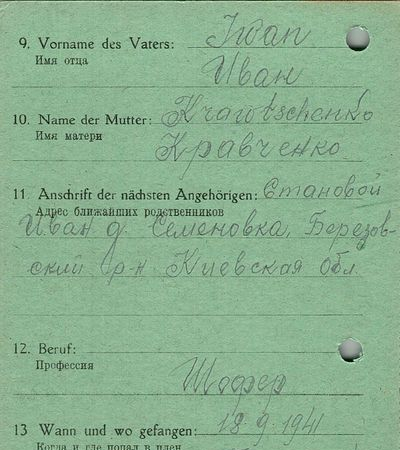 9. Vorname des Vaters: Iwan
Имя отца
Иван
10. Name der Mutter: Krawtschenko
Имя матери
Кравченко
11. Anschrift der nächsten Angehörigen: Становой
Адрес ближайших родственников
Иван д. Семеновка, Березов-
ский р-н Киевская обл.
12. Beruf:
Профессия
Шофер
13 Wann und wo gefangen: 18.9.1941
Когда и где попал в плен